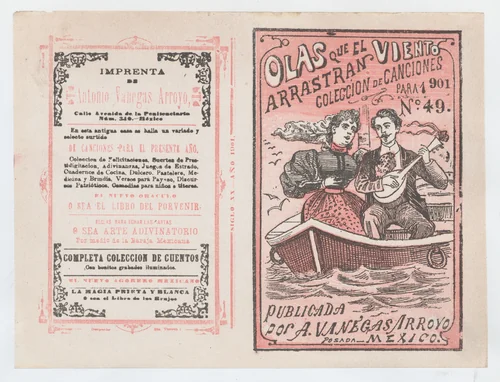 IMPRENTA
DE
Antonio Vanegas Arroyo,
Calle Avenida de la Penitenciaría
Núm. 249.-México.
En esta antigua casa se halla un variado y
selecto surtido
DE CANCIONES PARA EL PRESENTE AÑO,
Coleccion de Felicitaciones, Suertes de Pres-
tidigitacion, Adivinanzas, Juegos de Estrado,
Cuadernos de Cocina, Dulcero, Pastelero,
Brindis, Versos para Payaso, Discur-
sos Patrióticos, Comedias para niños o títeres.
EL NUEVO ORACULO
O SEA EL LIBRO DEL PORVENIR
O SEA ARTE ADIVINATORIO
Por medio de la Baraja Mexicana
COMPLETA COLECCION DE CUENTOS
Con bonitos grabados iluminados.
EL NUEVO AGORERO MEXICANO
LA MAGIA PRIETA Y BLANCA
ó sea el Libro de los Brujos
SIGLO XX.-AÑO 1901.
OLAS QUE EL VIENTO
ARRASTRAN
COLECCION DE CANCIONES
PARA 1901
Nº 49.
PUBLICADA
POR A. VANEGAS ARROYO
POSADA MEXICO.